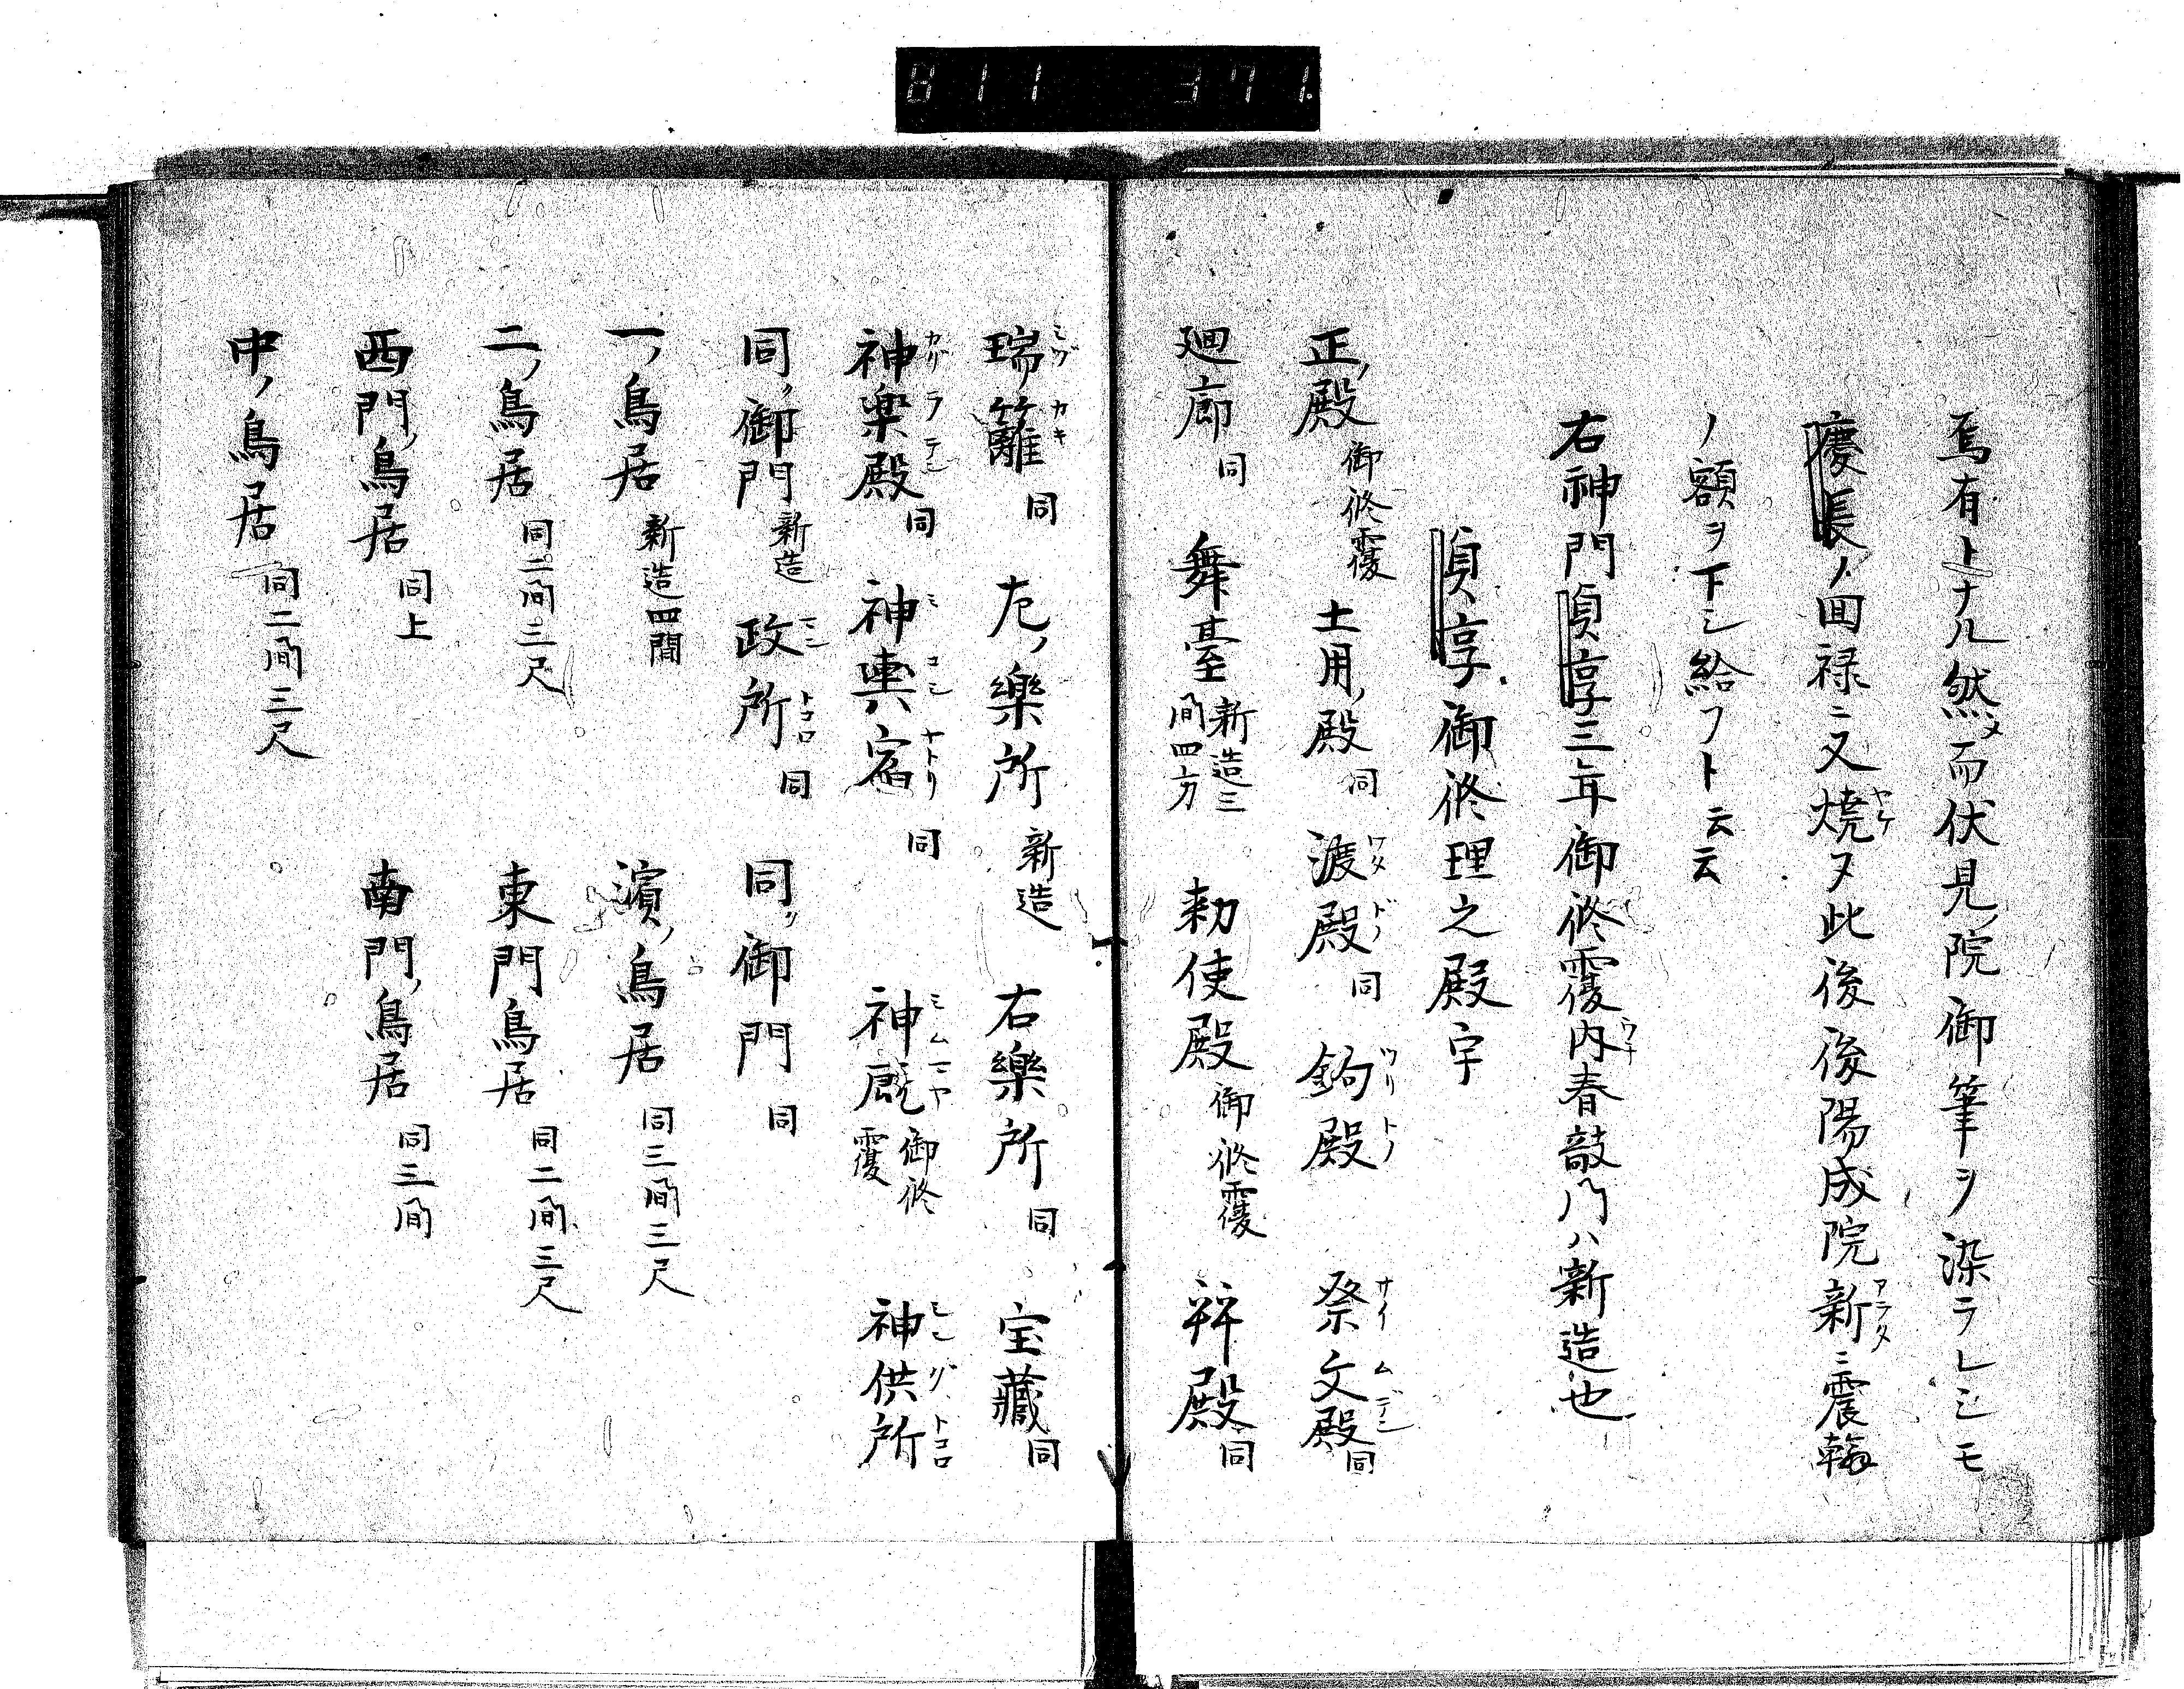 811 371.
烏有トナル然メ而伏見ノ院御筆ヲ染ラレシモ
慶長ノ回禄ニ又焼ヌ此後後陽成院新ニ震翰
ノ額ヲ下シ給フト云云
右神門貞享三年御修覆内春敲門ハ新造也
貞享御修理之殿宇
正ノ殿御修覆 土用ノ殿同 渡殿同 鉤殿 祭文殿同
廻廊同 舞臺新造三間四方 勅使殿御修覆 辤殿同
瑞籬同 左ノ樂所新造 右樂所同 宝蔵同
神楽殿同 神輿宿同 神厩御修覆 神供所
同ク御門新造 政所同 同ク御門同
一ノ鳥居新造四間 濱ノ鳥居同三間三尺
二ノ鳥居同二間三尺 東門鳥居同二間三尺
西門ノ鳥居同上 南門ノ鳥居同三間
中ノ鳥居同二間三尺